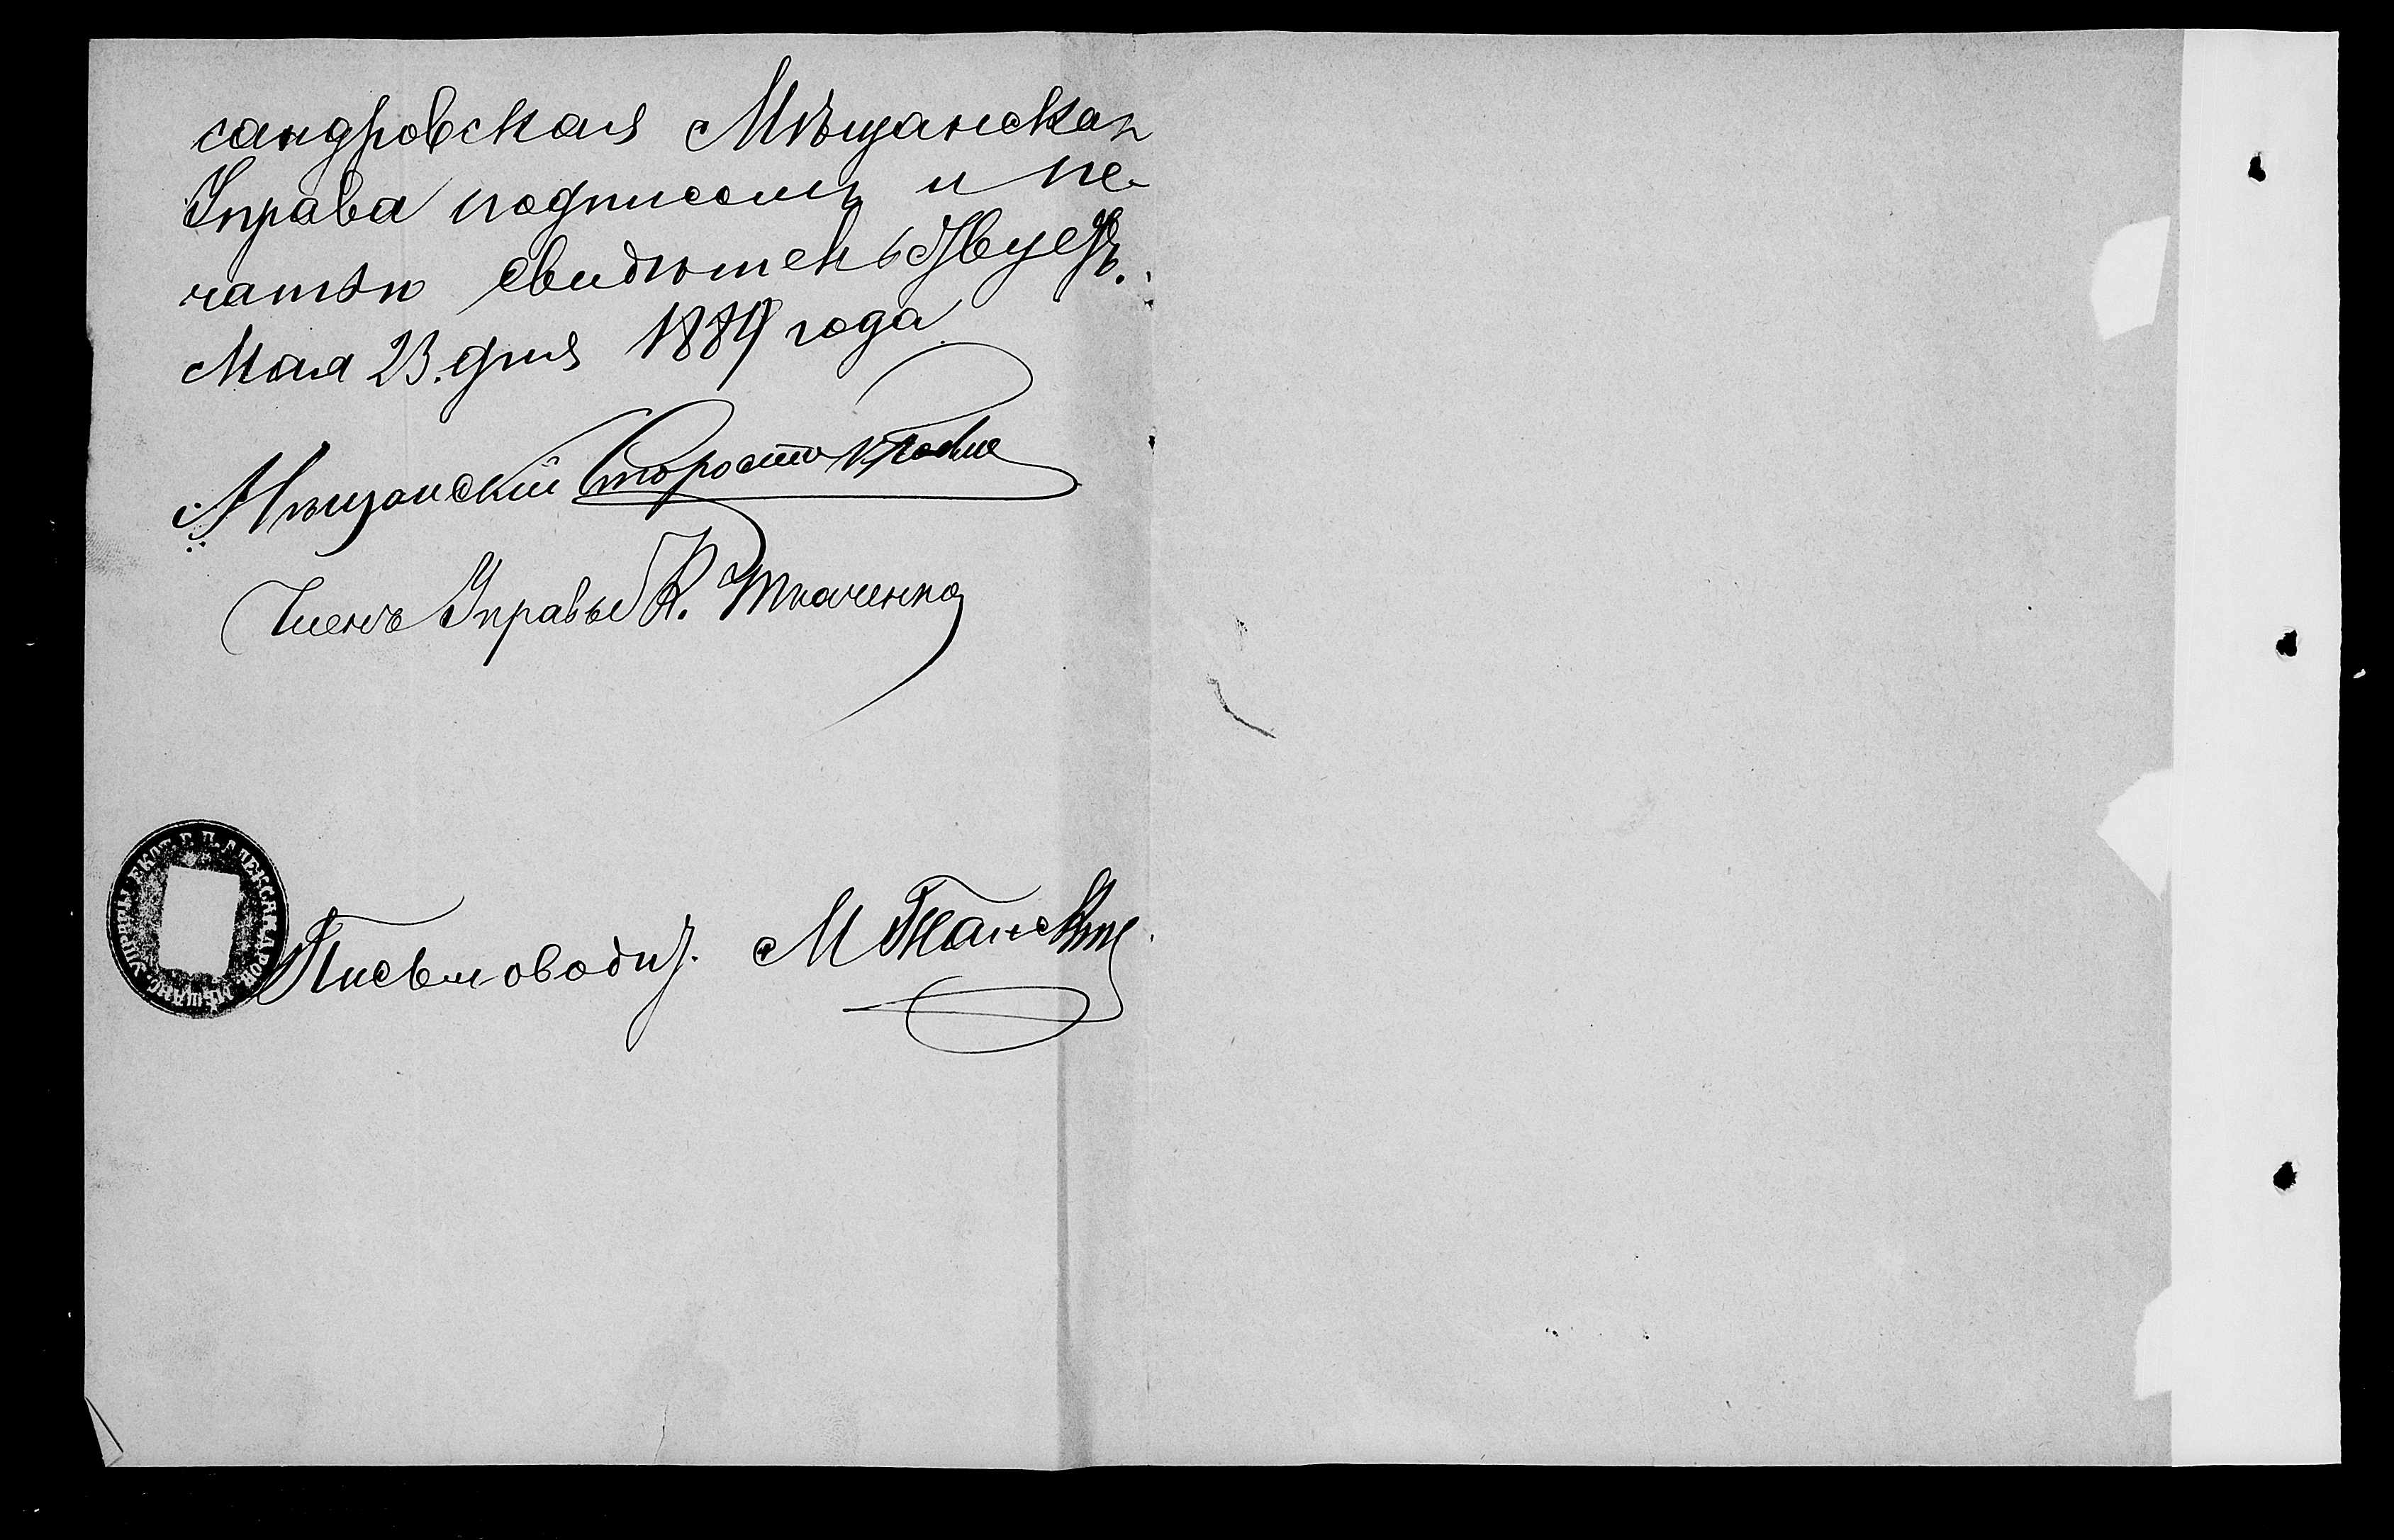 сандровская Мѣщанская
Управа подписомъ и пе-
чатью свидѣтельствуетъ.
Мая 23. дня 1889 года
Мѣщанскій Староста
Членъ Управы К. Ткаченко
ЕКАТ. Г. П. АЛЕКСАНДРОВ. МѢЩАНС. УПРАВЫ
Письмоводит. М